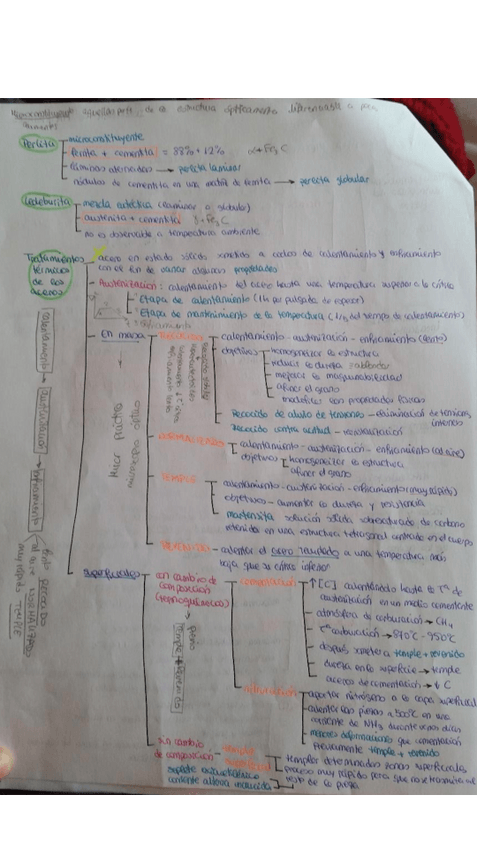 Microconstituyente: aquella parte de la estructura ópticamente diferenciable a pocos
aumentos
Perlita
microconstituyente
ferrita + cementita = 88% + 12% α+Fe3C
láminas alternadas → perlita laminar
nódulos de cementita en una matriz de ferrita → perlita globular
Ledeburita
mezcla eutéctica (laminar o glóbulo)
austenita + cementita γ+Fe3C
no es observable a temperatura ambiente
Tratamientos
térmicos
de los
aceros
acero en estado sólido sometido a ciclos de calentamiento y enfriamiento
con el fin de variar algunas propiedades
Austenización: calentamiento del acero hasta una temperatura superior a la crítica
Etapa de calentamiento (1h por pulgada de espesor)
Etapa de mantenimiento de la temperatura (1/5 del tiempo de calentamiento)
Enfriamiento
calentamiento → austenización → enfriamiento
lento RECOCIDO
al aire NORMALIZADO
muy rápido TEMPLE
en masa
microscopio óptico
RECOCIDO
calentamiento - austenización - enfriamiento (lento)
objetivos
homogeneizar la estructura
reducir la dureza, ablandar
mejorar la maquinabilidad
afinar el grano
modificar las propiedades físicas
Recocido de alivio de tensiones - eliminación de tensiones
internas
Recocido contra acritud - recristalización
NORMALIZADO
calentamiento - austenización - enfriamiento (al aire)
objetivos
homogeneizar la estructura
afinar el grano
TEMPLE
calentamiento - austenización - enfriamiento (muy rápido)
objetivos - aumentar la dureza y resistencia
martensita solución sólida sobresaturada de carbono
retenida en una estructura tetragonal centrada en el cuerpo
REVENIDO - calentar el acero templado a una temperatura más
baja que la crítica inferior
superficiales
con cambio de
composición
(termoquímicos)
temple + revenido
cementación
↑[C] calentándolo hasta la Tª de
austenización en un medio cementante
atmósfera de carburación → CH4
Tª carburación → 870°C - 950°C
después someter a temple + revenido
dureza en la superficie → temple
aceros de cementación → ↓ C
nitruración
aportar nitrógeno a la capa superficial
calentar las piezas a 500°C en una
corriente de NH3 durante unos días
menores deformaciones que cementación
previamente temple + revenido
sin cambio
de composición
temple
superficial
templar determinadas zonas superficiales
proceso muy rápido para que no se transmita al
resto de la pieza
soplete oxiacetilénico
corriente alterna inducida